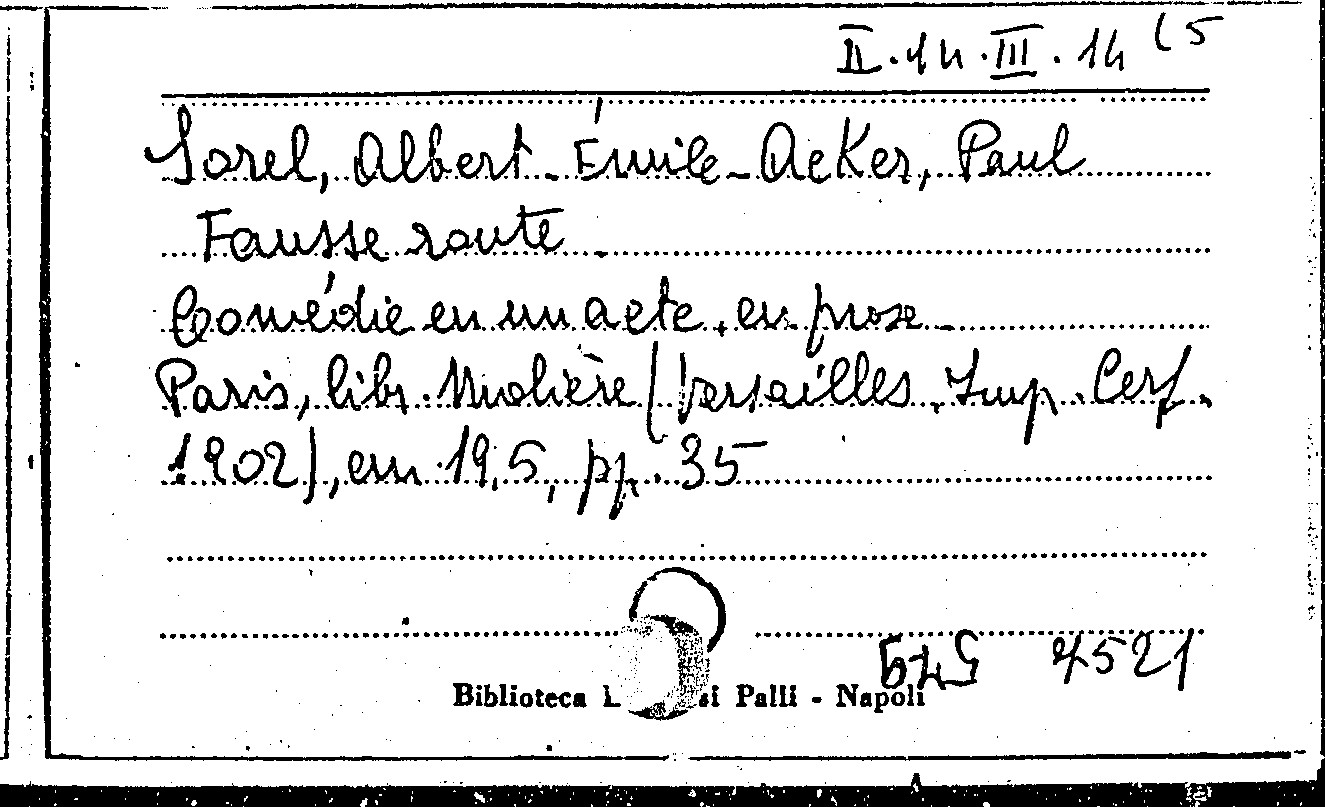 II.14.III.14 (5
Sorel, Albert-Émile-Acker, Paul
Fausse route
Comédie en un acte, en prose
Paris, libr. Molière (Versailles. Imp. Cerf.
1902), cm 19,5, pp. 35
7521
Biblioteca L si Palli - Napoli